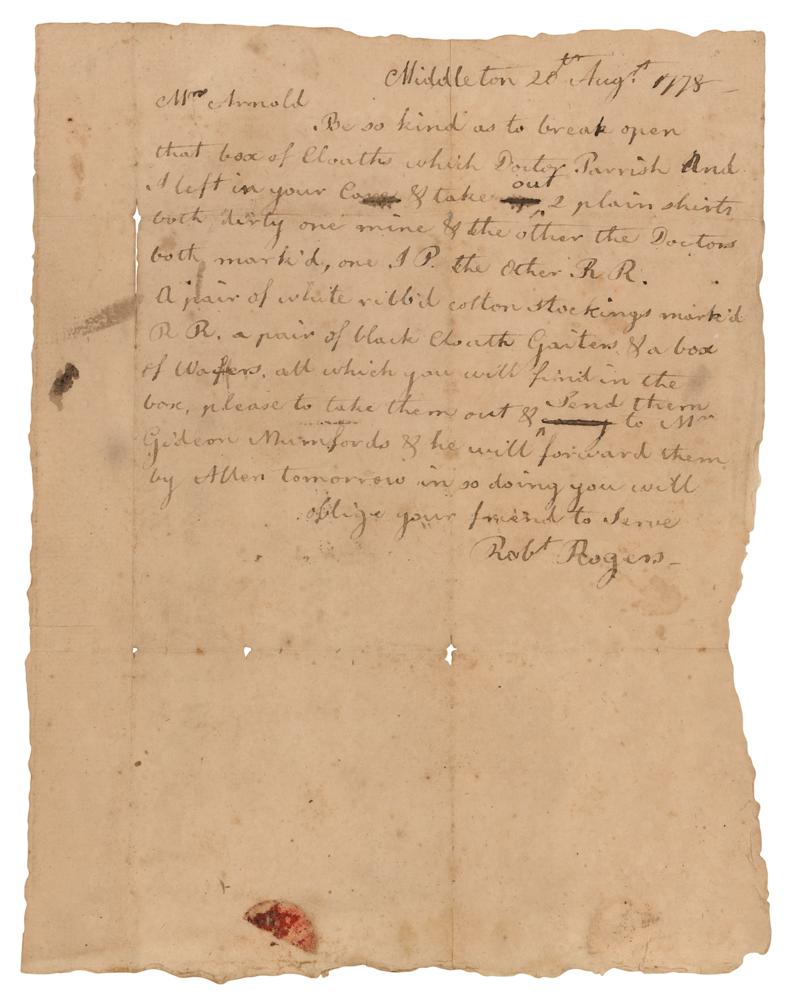 Middleton 20th Augt 1778
Mrs Arnold
Be so kind as to break open
that box of Cloaths which Doctor Parrish And
I left in your & take out 2 plain shirts
both dirty one mine & the other the Doctors
both mark'd, one I P. the Other R R.
A pair of white ribb'd cotton stockings mark'd
R R. a pair of black Cloath Gaiters & a box
of Wafers. all which you will find in the
box, please to take them out & Send them to Mr
Gideon Mumfords & he will forward them
by Allen tomorrow in so doing you will
oblige your friend to Serve
Robt Rogers